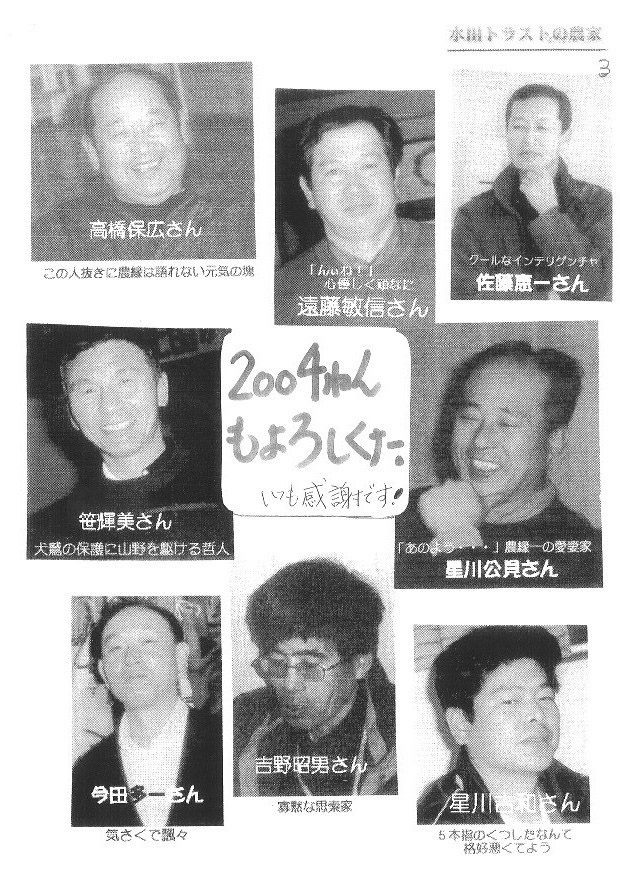 水田トラストの農家
3
高橋保広さん
この人抜きに農縁は語れない元気の塊
「んぃね！」
心優しく頑なに
遠藤敏信さん
クールなインテリゲンチャ
佐藤恵一さん
2004ねん
もよろしくた。
いつも感謝です!
笹輝美さん
犬鷲の保護に山野を駆ける哲人
「あのよう・・・」農縁一の愛妻家
星川公見さん
今田多一さん
気さくで飄々
吉野昭男さん
寡黙な思索家
星川吉和さん
5本指のくつしたなんて
格好悪くてよう